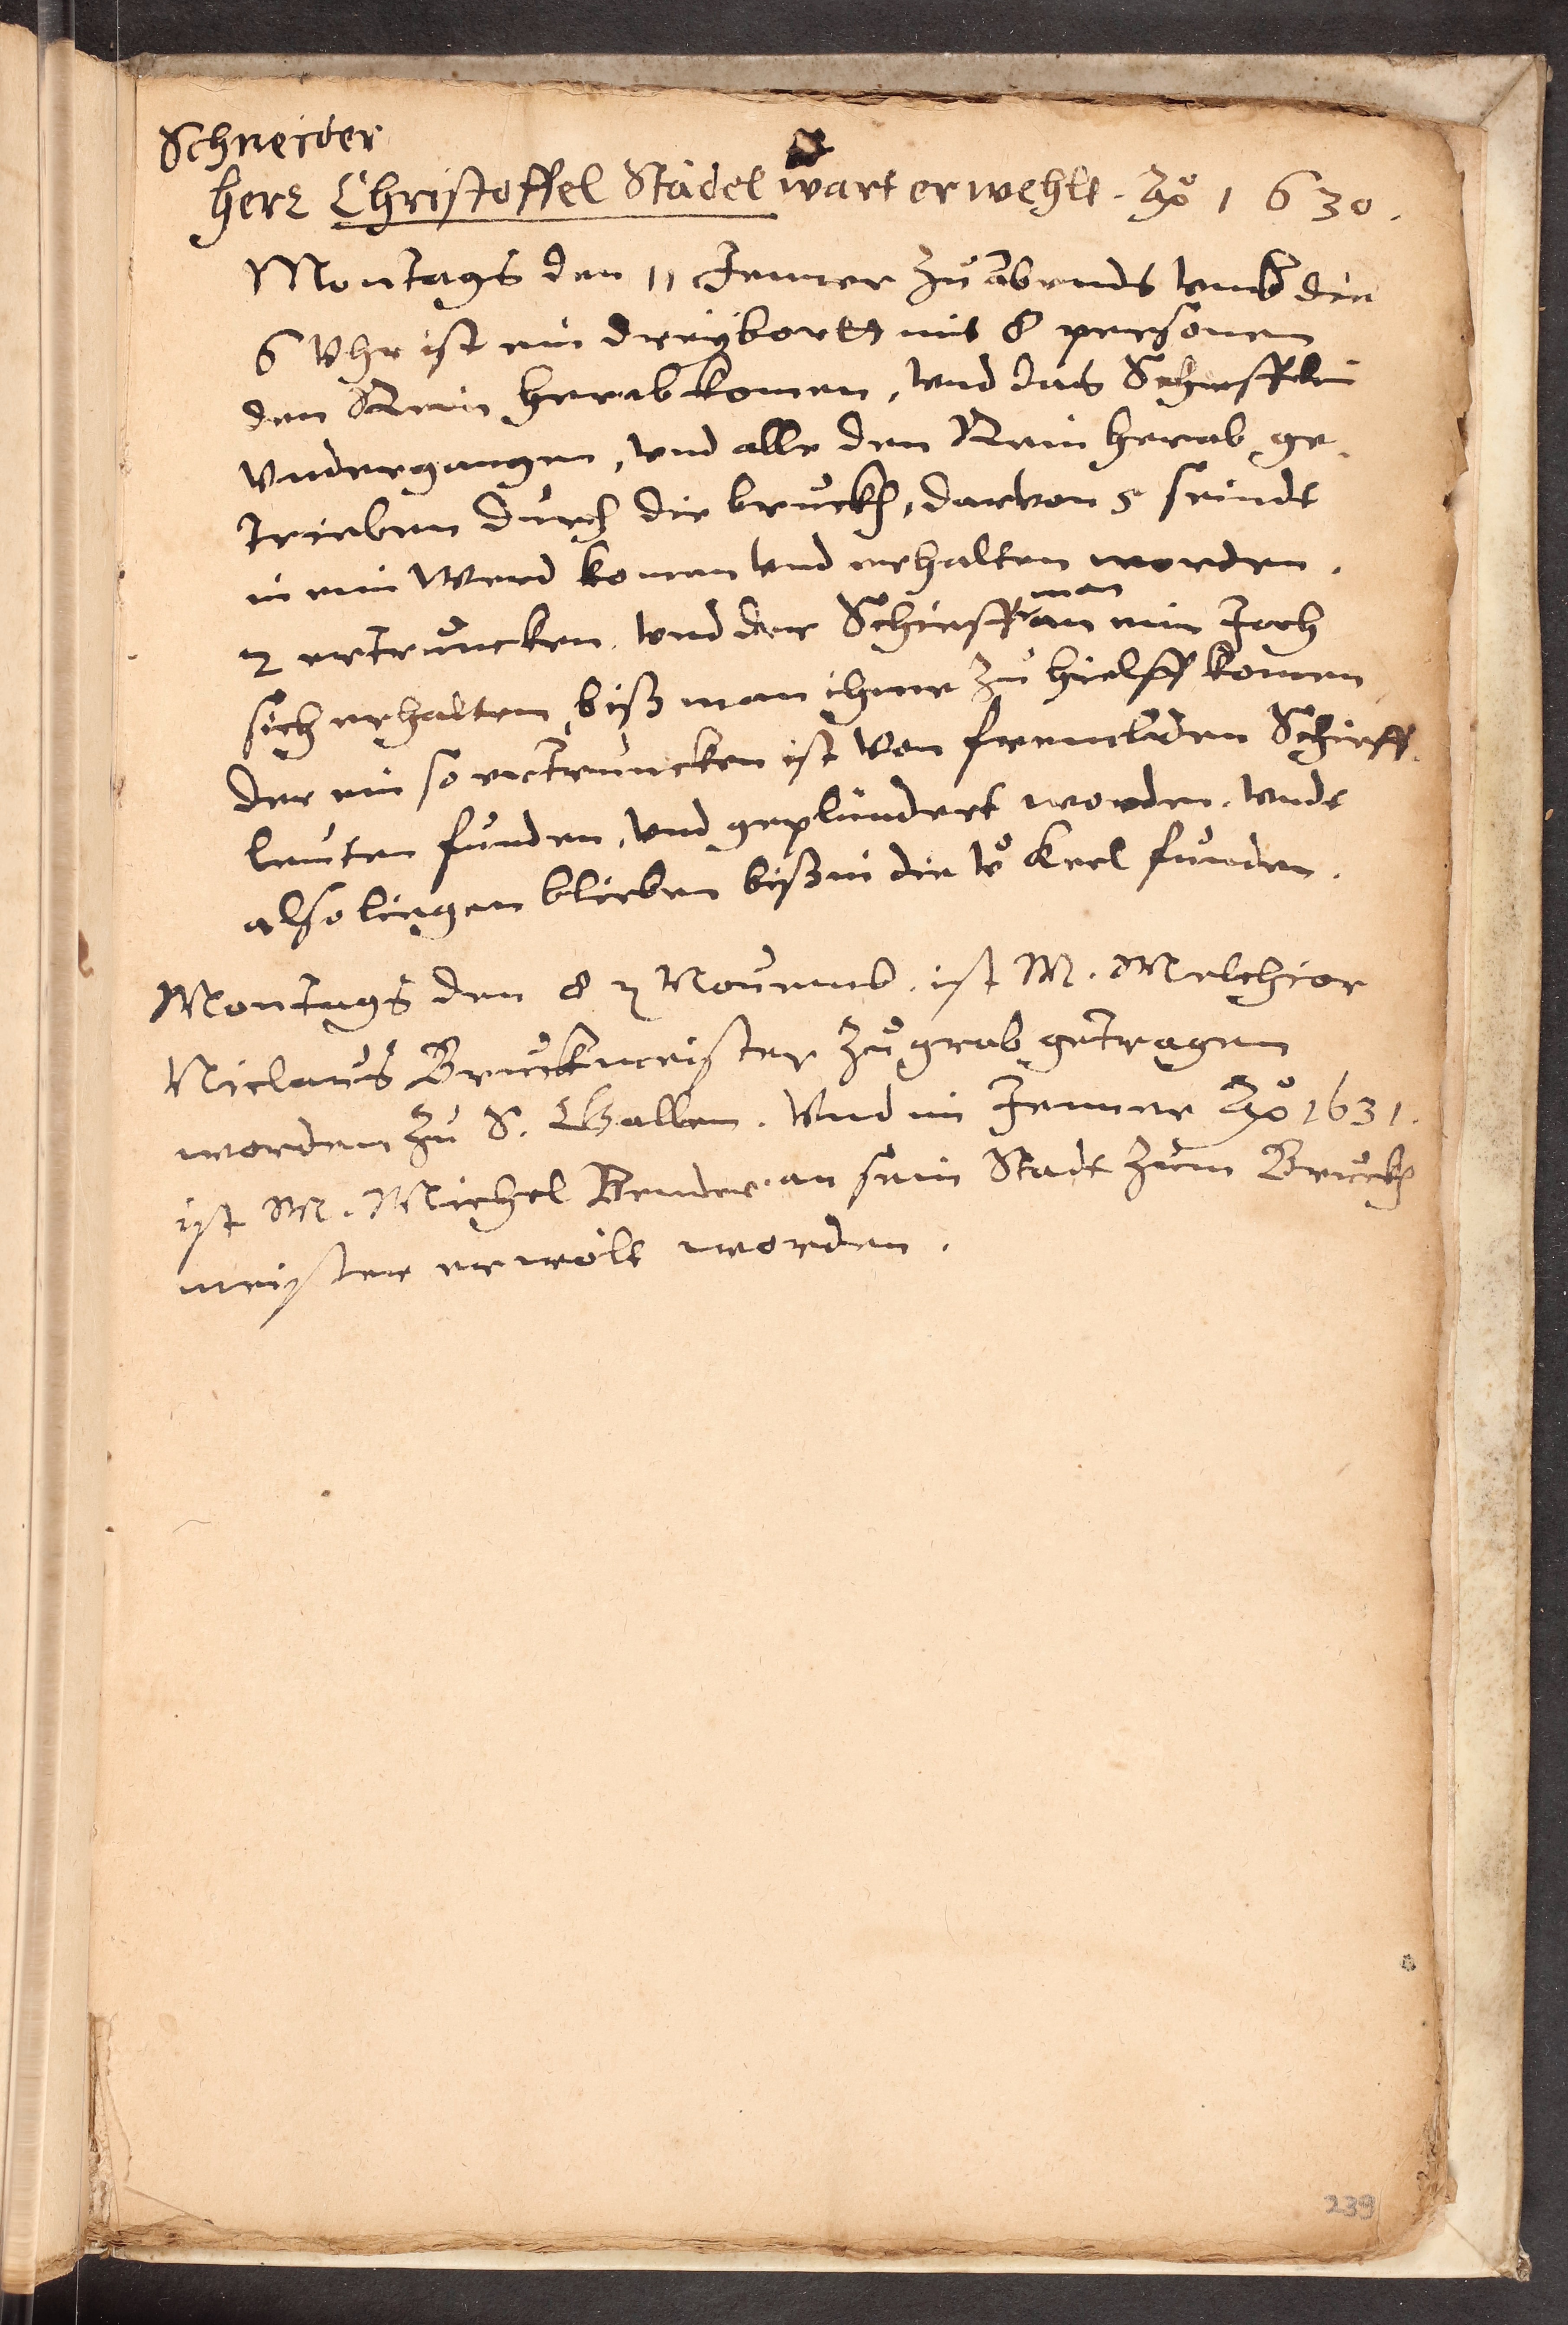 Schneider
herr Christoffel Städel wart erwehlt. Aõ 1630.
Montags den 11 Jenner zu Abends umb die
6 Uhr ist ein dreybortt mit 8 personen
den Rein herab komen, und das Schieffelin
Undergangen, und alle den Rein herab ge-
trieben durch die bruckh, darvon 5 seindt
in ein Werd komen und erhalten worden.
2 ertruncken. und der Schieffman an eim Joch
sich erhalten, biß man ihme zu hielff komen
der ein so ertruncken ist von frembden Schieff-
leuten funden, und geplündert worden. undt
also liegen blieben biß in die zu Keel funden.
Montags den 8 Nouemb. ist M. Melchior
Niclaus Bruckmeister zu grab getragen
worden zu S. Gallen. Und im Jenner Aõ 1631.
ist M. Michel Bender an sein Stadt zum Bruckh
meister erwölt worden.
239